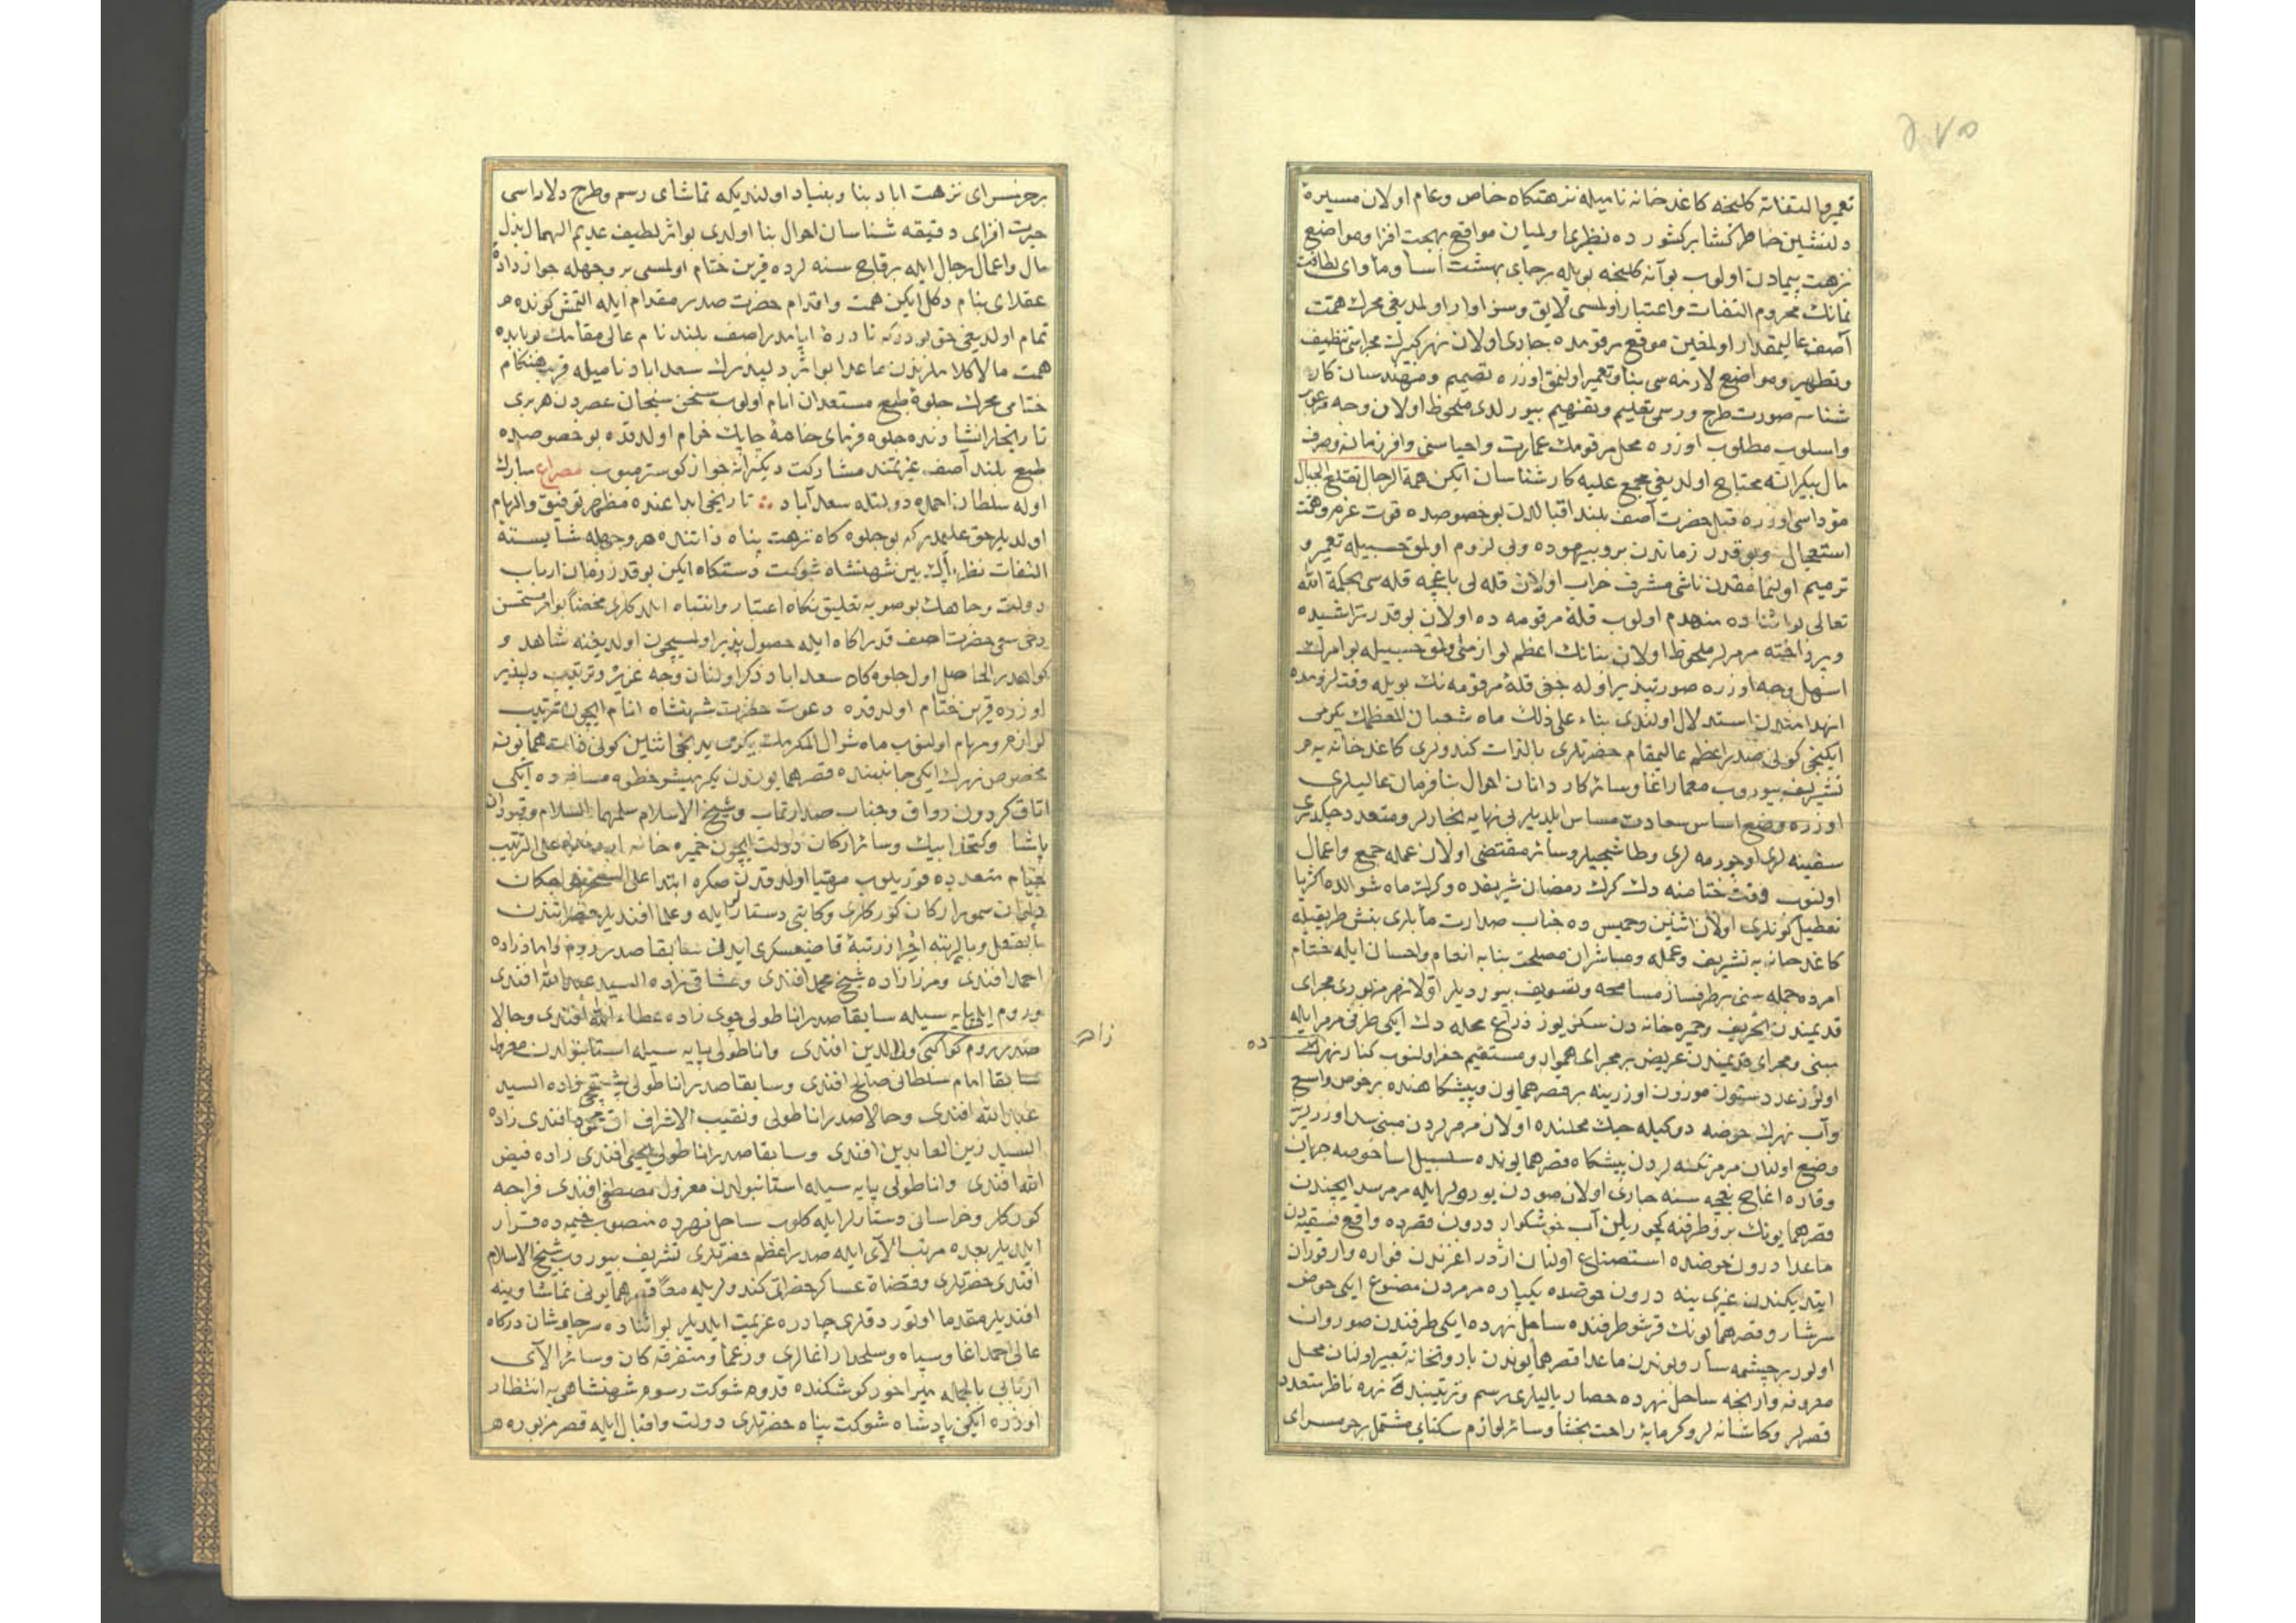 ٢٧٥
تعمیر والتفاته کلنجه کاغدخانه نامیله نزهتکاه خاص وعام اولان مسیرۀ
دلنشین خاطرکشا بر کشورده نظیری اولمیان مواقع بهجت افزا ومواضع
نزهت بیمادن اولوب بو آنه کلنجه بویله بر جای بهشت آسا ومأوای لطافت
نمانك محروم التفات واعتبار اولمسی لایق وسزاوار اولمدیغی محرك همت
آصف عالیمقدار اولمغین موقع مرقومده جاری اولان نهر کبیرك مجراسنی تنظیف
وتطهیر ومواضع لازمه سی بنا وتعمیر اولنمق اوزره تصمیم ومهندسان کار
شناسه صورت طرح ورسمی تعلیم وتفهیم بیورلدی ملحوظ اولان وجه مرغوب
واسلوب مطلوب اوزره محل مرقومك عمارت واحیاسنی وافر زمانه وصرف
مال بیکرانه محتاج اولدیغی مجمع علیه کارشناسان ایکن همة الرجال تقلع الجبال
مؤداسی اوزره قبل حضرت آصف بلند اقبالدن بو خصوصده قوت عزم وهمت
استعجال وبو قدر زماندن برو بیهوده وبی لزوم اولمق حسبیله تعمیر و
ترمیم اولنمامقدن ناشی مشرف خراب اولان قله لی باغچه قله سی بحکمة الله
تعالی بو اثناده منهدم اولوب قلۀ مرقومه ده اولان بو قدر تراشیده
وپرداخته مرمرلر ملحوظ اولان بنانك اعظم لوازمی اولمق حسبیله بو امرك
اسهل وجه اوزره صورتپذیر اوله جغی قلۀ مرقومه نك بویله وقت لزومده
انهدامندن استدلال اولندی بناء علی ذلك ماه شعبان المعظمك یکرمی
ایکنجی کونی صدر اعظم عالیمقام حضرتلری بالذات کندولری کاغدخانه یه
تشریف بیوروب معمار اغا وسائر کاردانان احوال بنا فرمان عالیلری
اوزره وضع اساس سعادت مساس ایلدیلر بی نهایه نجارلر ومتعدد چکدیری
سفینه لری اوجورمه لری وطاشجیلر وسائر مقتضی اولان عمله جمع واعمال
اولنوب وقت ختامنه دك کرك رمضان شریفده وکرك ماه شوالده اکثریا
تعطیل کونلری اولان اثنین وخمیس ده جناب صدارت مأبلری بنش طریقیله
کاغدخانه یه تشریف وعمله ومباشران مصلحت بنایه انعام واحسان ایله ختام
امرده جمله سنی برطرفساز مسامحه وتسویف بیوردیلر اولا نهر مزبوری مجرای
قدیمندن تحریف وخمبره خانه دن سکز یوز ذراع محله دك ایکی طرفی مرمر ایله
مبنی ومجرای قدیمندن عریض بر مجرای هموار ومستقیم حفر اولنوب کنار نهرك
ده
اوتوز عدد ستون موزون اوزرینه بر قصر همایون وپیشکاهنده بر حوض واسع
وآب نهرك حوضه دوکیله جك محلنده اولان مرمرلردن مبنی سد اوزرینه
وضع اولنان مرمر تکنه لردن پیشکاه قصر همایونده سلسبیل آسا حوضه جریان
وقاره اغاج بغچه سنه جاری اولان صودن بوریلر ایله مرمر سد ایچندن
قصر همایونك بر طرفنه کچوریلن آب خوشکوار درون قصرده واقع فسقیه دن
ماعدا درون حوضده استصناع اولنان اژدر اغزندن فواره وار فوران
ایتدیکندن غیری ینه درون حوضده یکپاره مرمردن مصنوع ایکی حوض
سرشار وقصر همایونك قرشو طرفنده ساحل نهرده ایکی طرفندن صو روان
اولور بر چشمه سار وبوندن ماعدا قصر همایوندن باروتخانه تعبیر اولنان محل
معروفه وارنجه ساحل نهرده حصار یالیلری رسم وترتیبنده نهره ناظر متعدد
قصرلر وکاشانه لر وکرمابۀ راحت بخشا وسائر لوازم سکنایی مشتمل بر حرمسرای
بر حرمسرای نزهت اباد بنا وبنیاد اولندیکه تماشای رسم وطرح دلاراسی
حیرت افزای دقیقه شناسان احوال بنا اولدی بو اثر لطیف عدیم الهمال بذل
مال واعمال رجال ایله بر قاچ سنه لرده قرین ختام اولمسی بر وجهله جوازدادۀ
عقدای بنام دکل ایکن همت واقدام حضرت صدر مقدام ایله التمش کونده
تمام اولدیغی حق بودرکه نادرۀ ایامدر آصف بلند نام عالی مقامك بو بابده
همت مالاکلاملرندن ماعدا بو اثر دلپذیرك سعداباد نامیله قرب هنکام
ختامی محرك جلوۀ طبع مستعدان انام اولوب سخن سنجان عصردن هر بری
تاریخلر انشادنده جلوه فرمای خامۀ چابك خرام اولدقده بو خصوصده
طبع بلند آصف عزیمتند مشارکت دیکرانه جواز کوسترمیوب مصراع مبارك
اوله سلطان احمده دولتله سعد آباد ؞ تاریخی ابداعنده مظهر توفیق والهام
اولدیلر حق علیمدر که بو جلوه کاه نزهت پناه ذاتنده هر وجهله شایستۀ
التفات نظر پاك بین شهنشاه شوکت دستکاه ایکن بو قدر زمان ارباب
دولت وجاهك بو صوبه تعلیق نکاه اعتبار وانتباه ایلمدکلری محضا بو امر مستحسن
دخی سعی حضرت آصف قدر آکاه ایله حصول پذیر اولمسیچون اولدیغنه شاهد و
کواهدر الحاصل اول جلوه کاه سعداباد ذکر اولنان وجه عزیز وترتیب دلپذیر
اوزره قرین ختام اولدقده دعوت حضرت شهنشاه انام ایچون ترتیب
لوازم ومهام اولنوب ماه شوال المکرمك یکرمی یدنجی اثنین کونی ذات همایونه
مخصوص نهرك ایکی جانبنده قصر همایوندن یکرمیشر خطوه مسافه ده ایکی
اتاق کردون رواق وجناب صدارتمآب وشیخ الاسلام سلمهما السلام وقپودان
پاشا وکتخدا بیك وسائر ارکان دولت ایچون خمبره خانه علی الترتیب
خیام متعدده قوریلوب مهیا اولدقدن صکره ابتدا علی السحر خواجکان
دیوان سمور ارکان کورکلری وکاتبی دستارلر ایله وعلما افندیلر حضراتندن
بالفعل وبالرتبه احراز رتبۀ قاضیعسکری ایدن سابقا صدر روم داماد زاده
احمد افندی ومرزا زاده شیخ محمد افندی وعشاقی زاده السید عبد الله افندی
وروم ایلی پایه سیله سابقا صدر اناطولی چوی زاده عطاء الله افندی وحالا
زاده
صدر روم کواکبی ولی الدین افندی واناطولی پایه سیله استانبولدن معزول
سابقا امام سلطانی صالح افندی وسابقا صدر اناطولی زاده السید
عبد الله افندی وحالا صدر اناطولی ونقیب الاشراف افندی زاده
السید زین العابدین افندی وسابقا صدر اناطولی یحیی افندی زاده فیض
الله افندی واناطولی پایه سیله استانبولدن معزول مصطفی افندی فراجه
کورکلر وخراسانی دستارلر ایله کلوب ساحل نهرده منصوب خیمه ده قرار
ایلدیلر بعده مرتب آلای ایله صدر اعظم حضرتلری تشریف بیوروب شیخ الاسلام
افندی حضرتلری وقضاة عساکر حضراتی کندولریله معا قصر همایونی تماشا وینه
افندیلر مقدما اوتوردقلری چادره عزیمت ایلدیلر بو اثناده سرچاوشان درکاه
عالی احمد اغا وسپاه وسلحدار اغالری وزعما ومتفرقه کان وسائر آلای
اربابی بالجمله میراخور کوشکنده قدوم شوکت رسوم شهنشاهی یه انتظار
اوزره ایکن پادشاه شوکت پناه حضرتلری دولت واقبال ایله قصر مزبوره